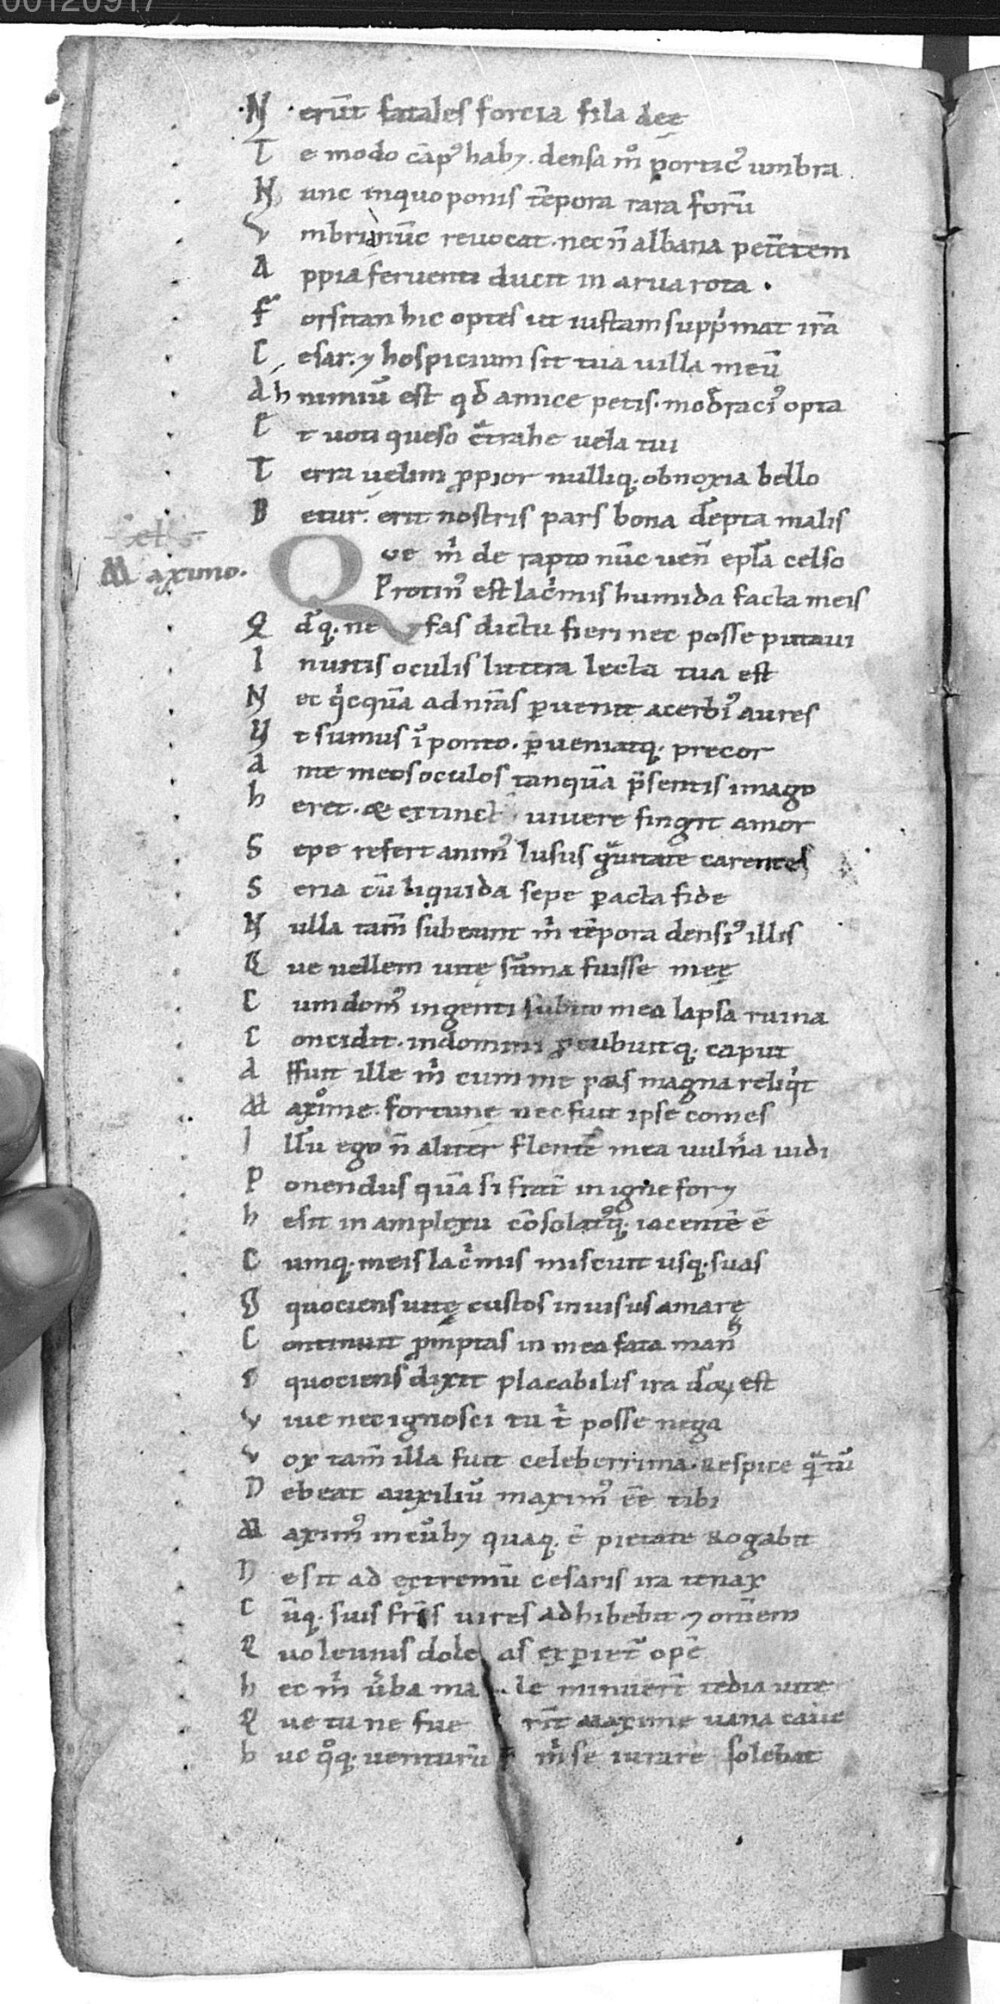 00120917
N erūt fatales forcia fila deę
T e modo cāpꝰ habꝫ. densa m̊ porticꝰ umbra
N unc inquoponis tēpora rara forū
V mbria nūc reuocat. nec n̄ albana petētem
A ppia feruenti ducit in arua rota .
F orsitan hic optes ut iustam supp̍mat irā
C esar. ⁊ hospicium sit tua uilla meū
A h nimiū est qđ amice petis. mođracıꝰ opta
E t uoti queso c̄trahe uela tui
T erra uelim ꝓpior nulliq. obnoxia bello
D etur. erit nostris pars bona dēpta malis
cel s
Maximo.
Que m̍ de rapto nūc uen̄ epl̄a celso
Protinꝰ est lac̍mis humida facta meis
Q d̄q. nefas dictu fieri nec posse putaui
I nuitis oculis littera lecta tua est
N ec q̍cquā ad nr̄as ꝑuenit acerbıꝰ aures
V t sumus ı̄ ponto. ꝑueniatq. precor
A nte meos oculos tanquā p̄sentis imago
h eret. & extinct uiuere fingit amor
S epe refert animꝰ lusus grauitate carentes
S eria cū liquida sepe ꝑacta fide
N ulla tam̄ subeunt m̍ tēpora densıꝰ illis
Q ue uellem uitę sūma fuisse meę
C um domꝰ ingenti subito mea lapsa ruina
C oncidit. in domini ꝓcubuitq. caput
A ffuit ille m̍ cum me pars magna reliq̍t
M axıme. fortunę nec fuit ipse comes
I llū ego n̄ aliter flentē mea uuln̄a uidi
P onendus quā si frat̄ in igne forꝫ
h esit in amplexu cōsolatꝰq. iacentē ē
C umq. meis lac̍mis miscuit usq. suas
O quociens uitę custos inuisus amarę
C ontinuit ꝓmptas in mea fata manꝰ
O quociens dixit placabilis ira dōꝝ est
V iue nec ignosci tu t̍ posse nega
V ox tam̄ illa fuit celeberrima. Respice q̄tū
D ebeat auxiliū maximꝰ ēē tibi
M aximꝰ incūbꝫ quaq. ē pietate rogabit
N e sit ad extremū cesaris ira tenax
C ūq. suis fr̄is uires adhibebit ⁊ omēm
Q uo leuius doleas experiet̄ opē
h ec m̍ ūba male minuer̄t tedia uite
Q ue tu ne fuerīt maxime uana caue
h uc q̊q. uenturū m̍ se iurare solebat